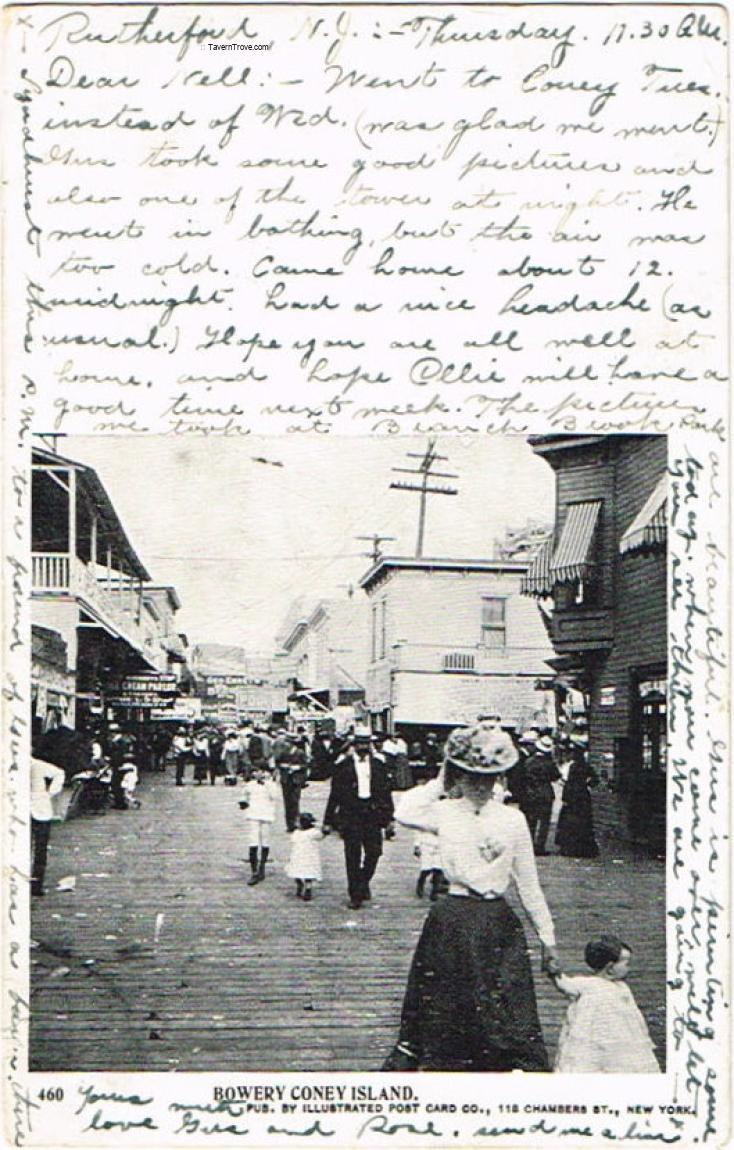 Rutherford, N.J. :- Thursday. 11.30 A.M.
:: TavernTrove.com
Dear Nell:- Went to Coney Tues.
instead of Wed. (was glad we went.)
Gus took some good pictures and
also one of the tower at night. He
went in bathing, but the air was
too cold. Came home about 12.
midnight. had a nice headache (as
usual.) Hope you are all well at
home, and hope Ollie will have a
good time next week. The pictures
we took at Branch Brook Park
are beautiful. Gus is printing some
today. when you come over, will let
you see them. We are going to
x
x- Lyndhurst this P.M. to a friend of ours who has a
CREAM PARLOR
460 BOWERY CONEY ISLAND.
PUB. BY ILLUSTRATED POST CARD CO., 118 CHAMBERS ST., NEW YORK.
Yours with
love Gus and Rose. send me a line